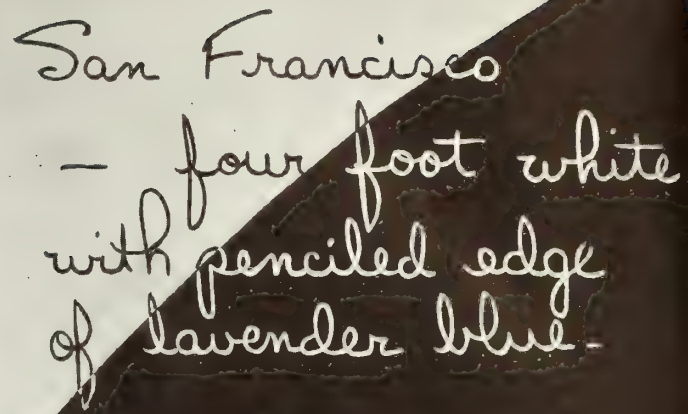 San Francisco
- four foot white
with penciled edge
of lavender blue.